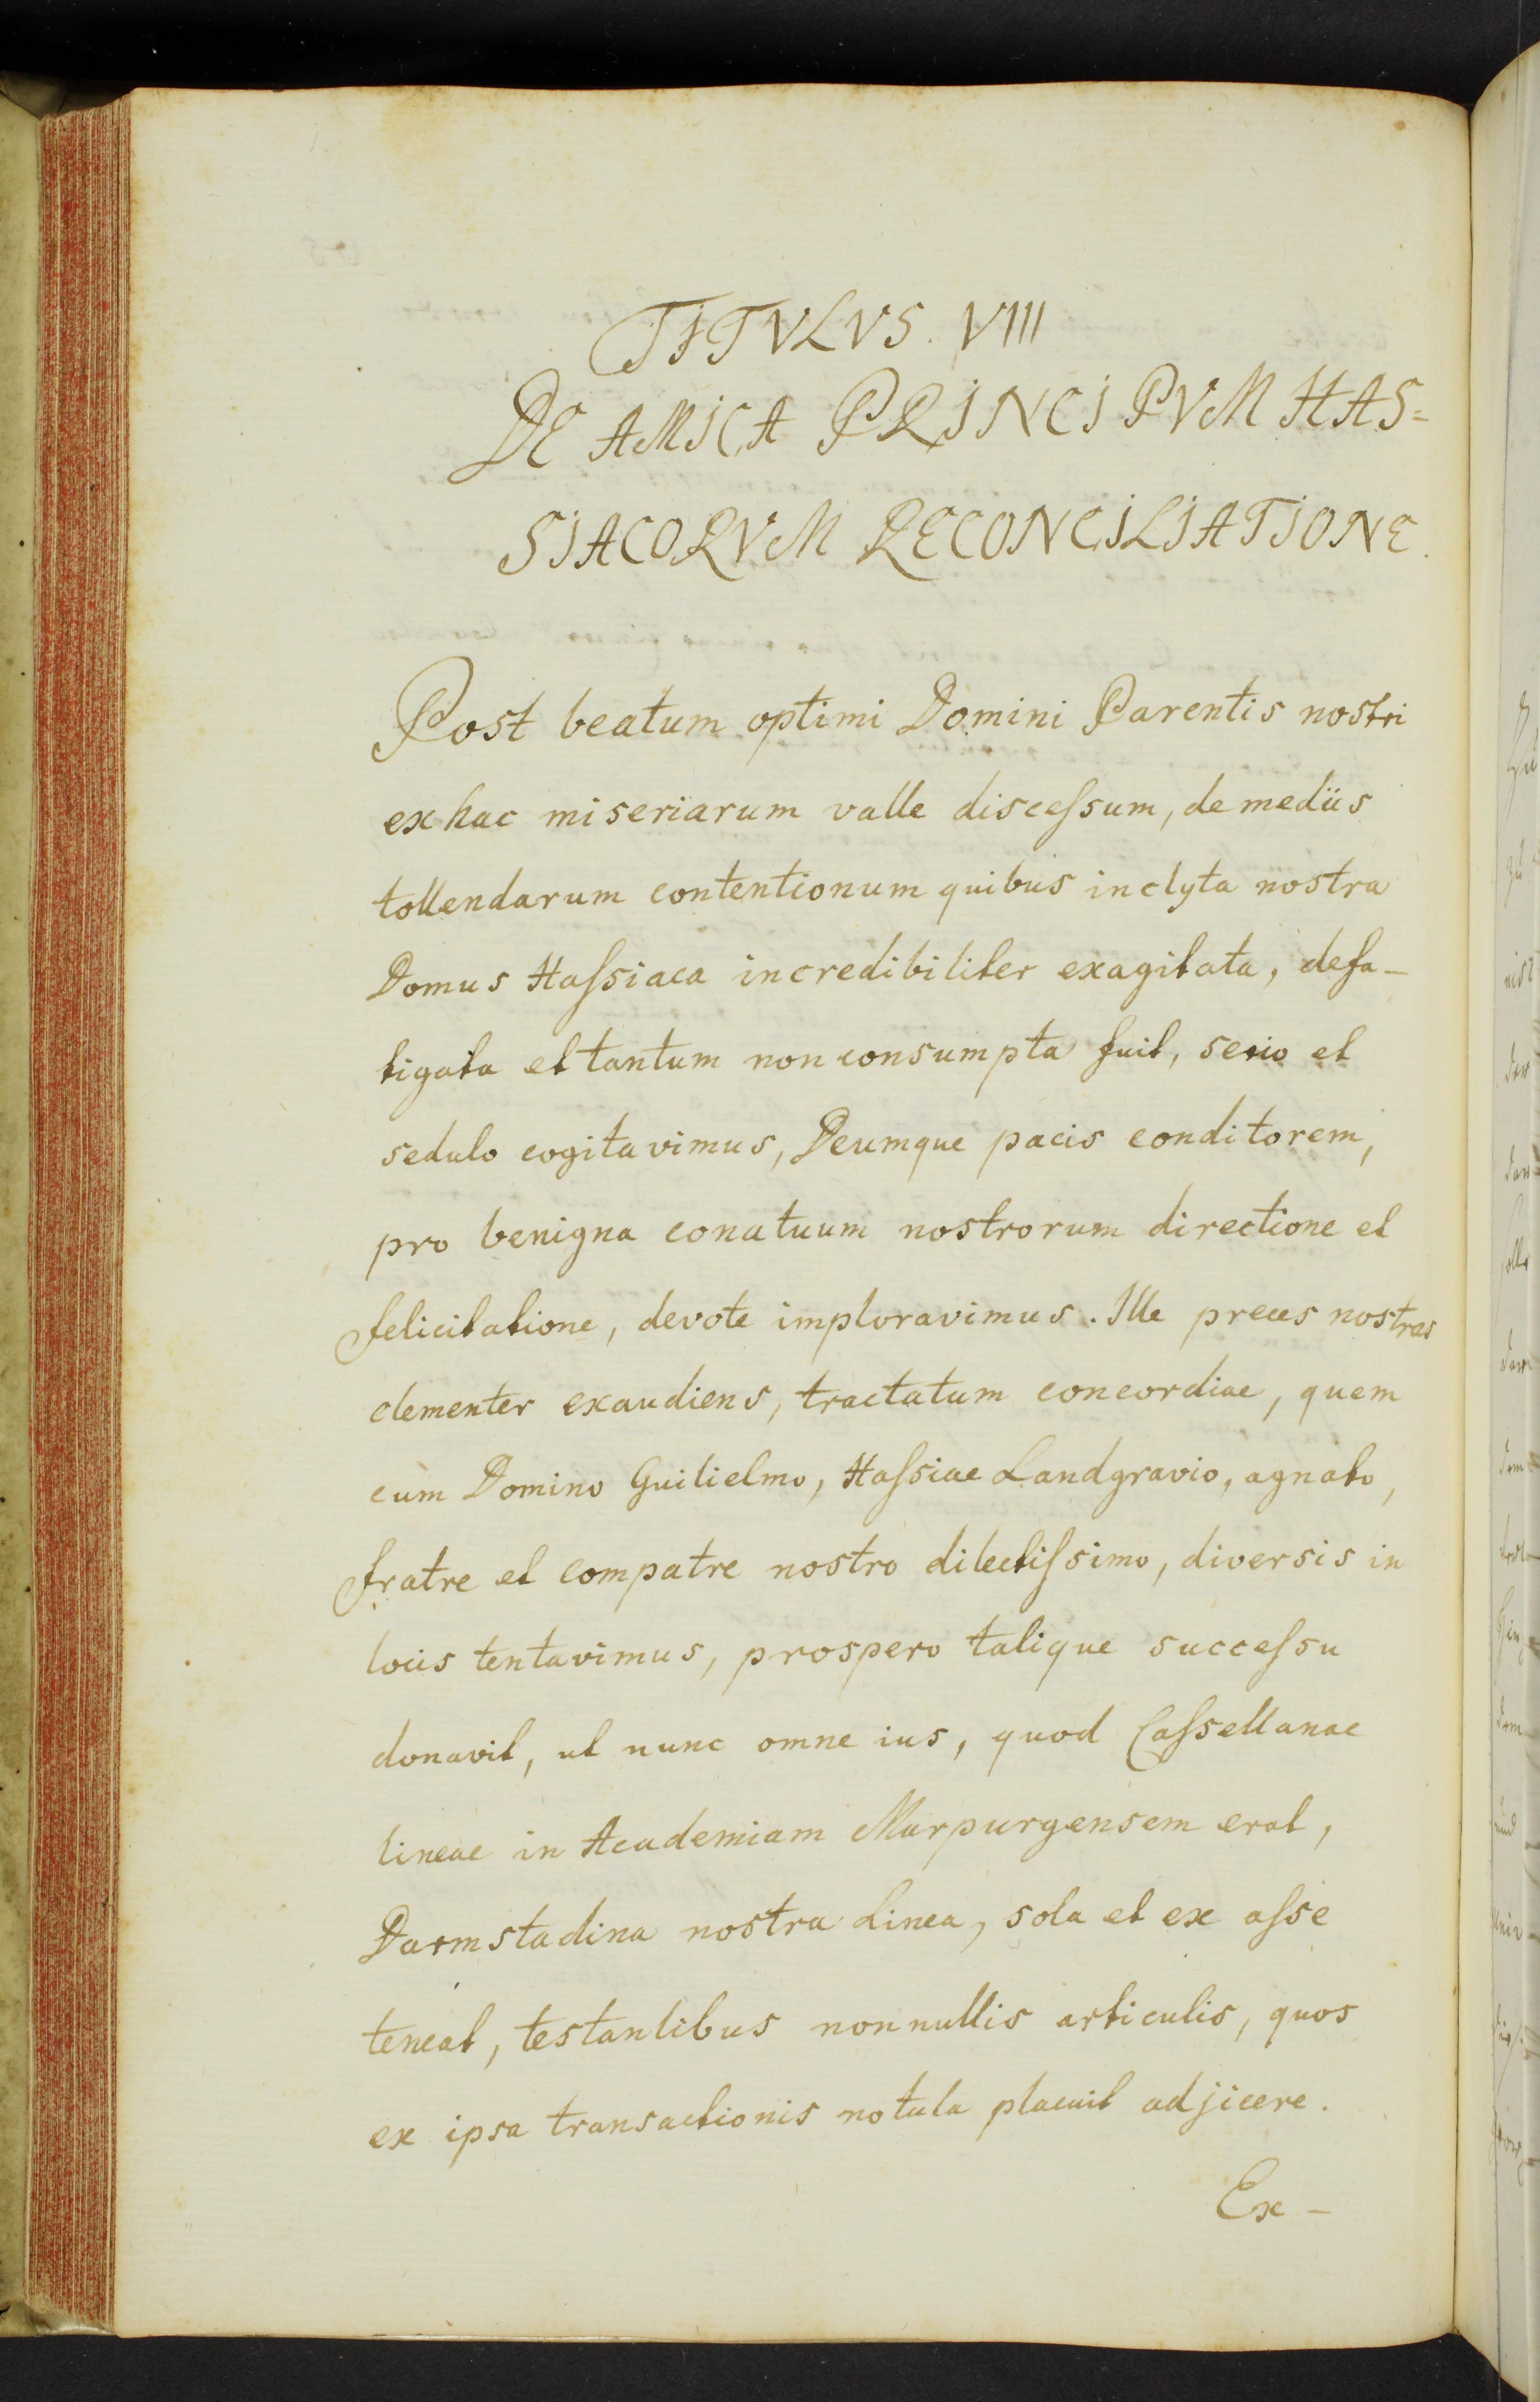 TITVLVS. VIII
DE AMICA PRINCIPVM HAS=
SIACORVM RECONCILIATIONE.
Post beatum optimi Domini Parentis nostri
ex hac miseriarum valle discessum, de mediis
tollendarum contentionum quibus inclyta nostra
Domus Hassiaca incredibiliter exagitata, defa-
tigata et tantum non consumpta fuit, serio et
sedulo cogitavimus, Deumque pacis conditorem,
pro benigna conatuum nostrorum directione et
felicitatione, devote imploravimus. Ille preces nostras
clementer exaudiens, tractatum concordiae, quem
cum Domino Guilielmo, Hassiae Landgravio, agnato,
fratre et compatre nostro dilectissimo, diversis in
locis tentavimus, prospero talique successu
donavit, ut nunc omne ius, quod Cassellanae
lineae in Academiam Marpurgensem erat,
Darmstadina nostra Linea, sola et ex asse
teneat, testantibus nonnullis articulis, quos
ex ipsa transactionis notula placuit adjicere.
Ex-